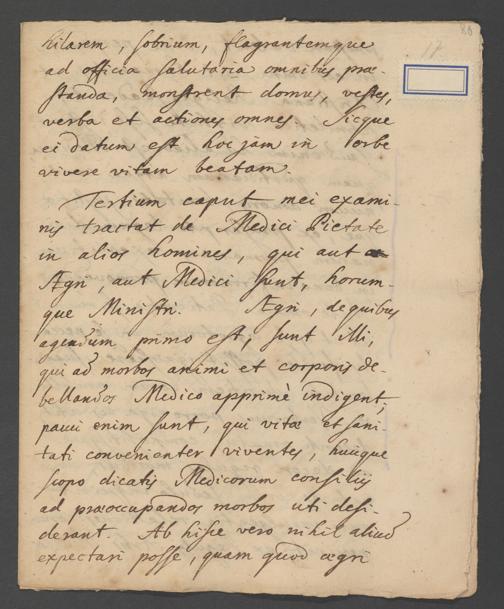 88
17
hilarem, sobrium, flagrantemque
ad officia salutaria omnibus præ-
standa, monstrent domus, vestes,
verba et actiones omnes. Sicque
ei datum est hoc jam in orbe
vivere vitam beatam.
Tertium caput mei exami-
nis tractat de Medici Pietate
in alios homines, qui aut
Ægri, aut Medici sunt, horum-
que Ministri. Ægri, de quibus
agendum primo est, sunt illi,
qui ad morbos animi et corporis de-
bellandos Medico apprimè indigent;
pauci enim sunt, qui vitæ et sani-
tati convenienter viventes, huicque
scopo dicatis Medicorum consiliis
ad præoccupandos morbos uti desi-
derant. Ab hisce vero nihil aliud
expectari posse, quam quod ægri